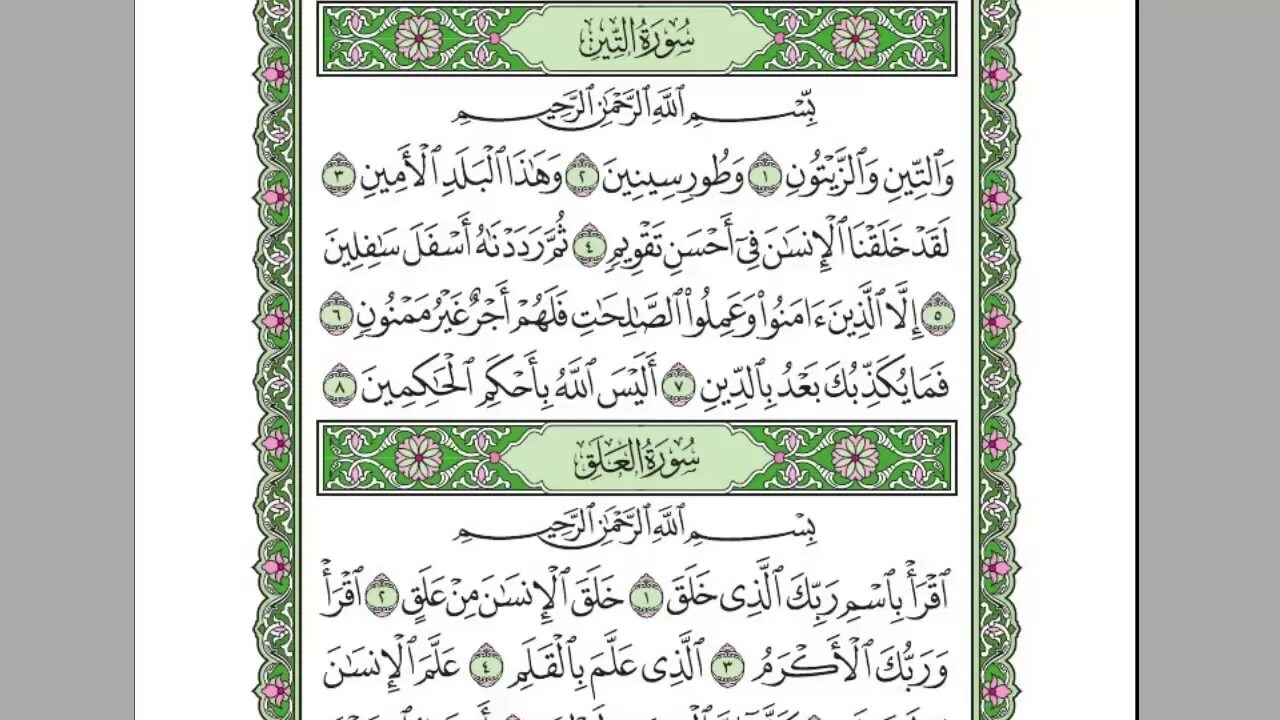 سُورَةُ التِّينِ
بِّسْمِ ٱللَّهِ ٱلرَّحْمَٰنِ ٱلرَّحِيمِ
وَٱلتِّينِ وَٱلزَّيْتُونِ ١ وَطُورِ سِينِينَ ٢ وَهَٰذَا ٱلْبَلَدِ ٱلْأَمِينِ ٣
لَقَدْ خَلَقْنَا ٱلْإِنسَٰنَ فِىٓ أَحْسَنِ تَقْوِيمٍ ٤ ثُمَّ رَدَدْنَٰهُ أَسْفَلَ سَٰفِلِينَ
٥ إِلَّا ٱلَّذِينَ ءَامَنُوا۟ وَعَمِلُوا۟ ٱلصَّٰلِحَٰتِ فَلَهُمْ أَجْرٌ غَيْرُ مَمْنُونٍ ٦
فَمَا يُكَذِّبُكَ بَعْدُ بِٱلدِّينِ ٧ أَلَيْسَ ٱللَّهُ بِأَحْكَمِ ٱلْحَٰكِمِينَ ٨
سُورَةُ العَلَقِ
بِسْمِ ٱللَّهِ ٱلرَّحْمَٰنِ ٱلرَّحِيمِ
ٱقْرَأْ بِٱسْمِ رَبِّكَ ٱلَّذِى خَلَقَ ١ خَلَقَ ٱلْإِنسَٰنَ مِنْ عَلَقٍ ٢ ٱقْرَأْ
وَرَبُّكَ ٱلْأَكْرَمُ ٣ ٱلَّذِى عَلَّمَ بِٱلْقَلَمِ ٤ عَلَّمَ ٱلْإِنسَٰنَ